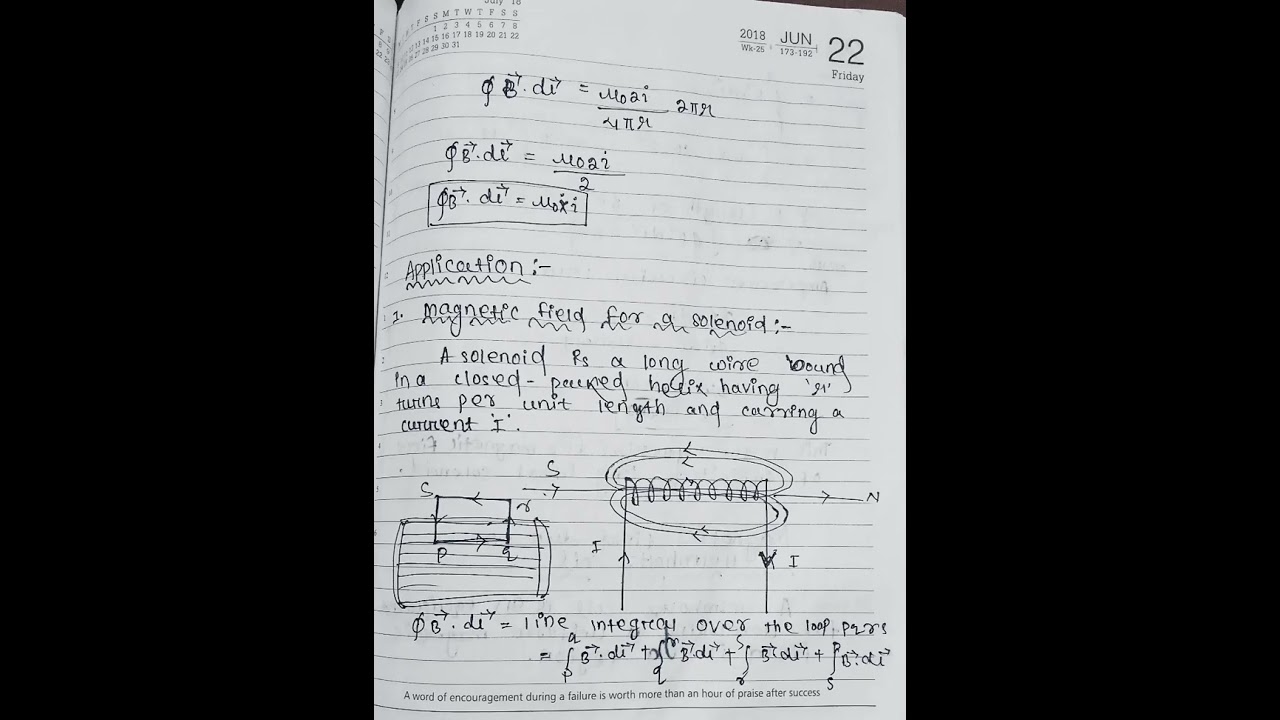 July 18
T F S S M T W T F S S
1 2 3 4 5 6 7 8
13 14 15 16 17 18 19 20 21 22
27 28 29 30 31
2018 JUN 22
Wk-25 173-192
Friday
∮B⃗.dl⃗ = μ₀2i/4πr 2πr
∮B⃗.dl⃗ = μ₀2i/2
∮B⃗.dl⃗ = μ₀ i
Application :-
1. magnetic field for a solenoid :-
A solenoid is a long wire wound
in a closed - packed helix having 'n'
turns per unit length and carrying a
current 'I'.
S
S r N
p q I I
∮B⃗.dl⃗ = line integral over the loop pqrs
= ∫ₚ^q B⃗.dl⃗ + ∫_q^r B⃗.dl⃗ + ∫_r^s B⃗.dl⃗ + ∫_s^p B⃗.dl⃗
A word of encouragement during a failure is worth more than an hour of praise after success